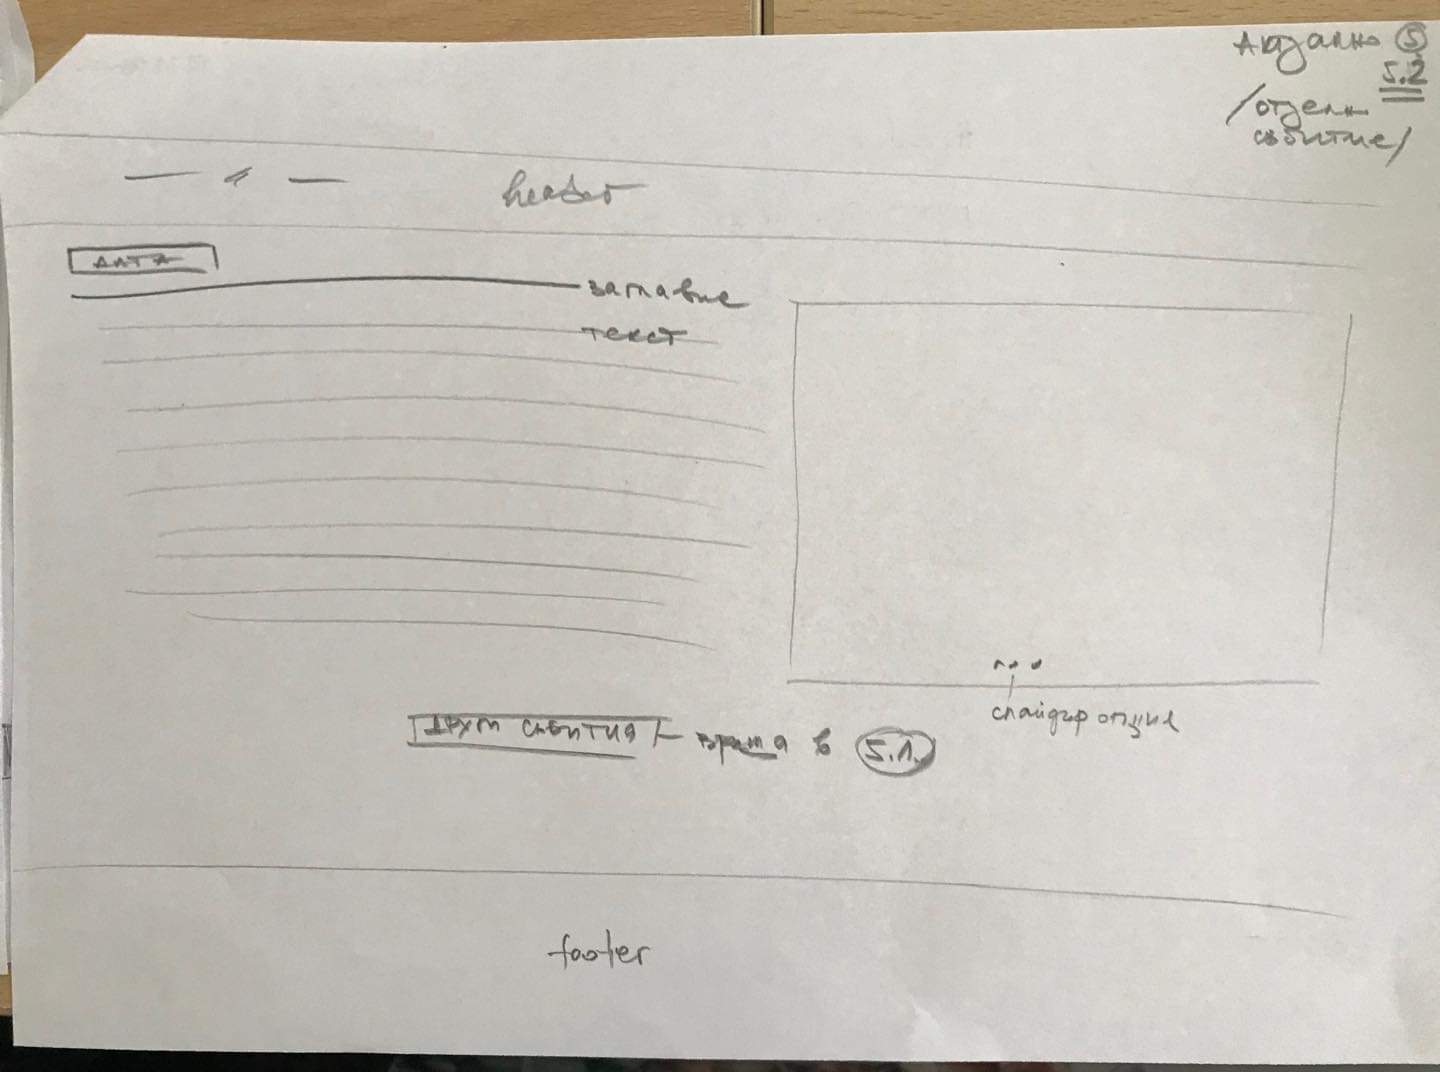 Актуално 5
5.2
/отделн
събитие/
header
ДАТА
заглавие
текст
слайдър опция
ДРУГИ СЪБИТИЯ - връща в 5.1.
footer